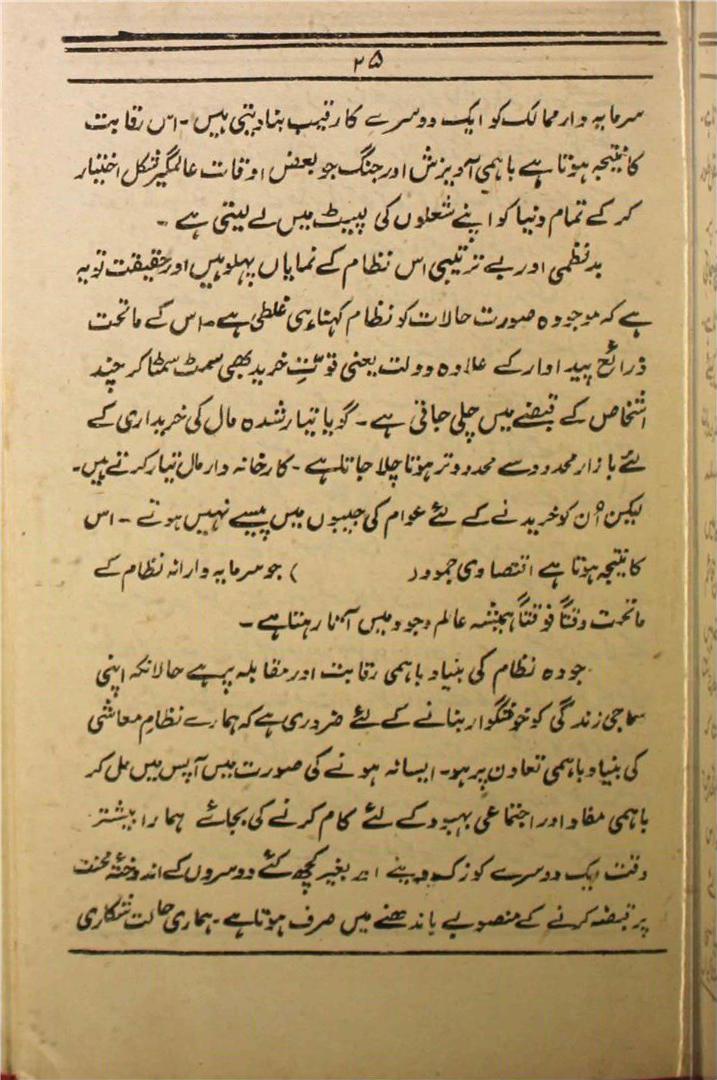 ۲۵
سرمایہ دار ممالک کو ایک دوسرے کا رقیب بنا دیتی ہیں۔ اس رقابت
کا نتیجہ ہوتا ہے باہمی آویزش اور جنگ جو بعض اوقات عالمگیر شکل اختیار
کر کے تمام دنیا کو اپنے شعلوں کی لپیٹ میں لے لیتی ہے۔
بدنظمی اور بے ترتیبی اس نظام کے نمایاں پہلو ہیں اور حقیقت تو یہ
ہے کہ موجودہ صورت حالات کو نظام کہنا ہی غلطی ہے۔ اس کے ماتحت
ذرائع پیداوار کے علاوہ دولت یعنی قوتِ خرید بھی سمٹ سمٹا کر چند
اشخاص کے قبضے میں چلی جاتی ہے۔ گویا تیار شدہ مال کی خریداری کے
لئے بازار محدود سے محدود تر ہوتا چلا جاتا ہے۔ کارخانہ دار مال تیار کرتے ہیں۔
لیکن اُن کو خریدنے کے لئے عوام کی جیبوں میں پیسے نہیں ہوتے۔ اس
کا نتیجہ ہوتا ہے اقتصادی جمود ( ) جو سرمایہ دارانہ نظام کے
ماتحت وقتاً فوقتاً ہمیشہ عالم وجود میں آتا رہتا ہے۔
جودہ نظام کی بنیاد باہمی رقابت اور مقابلہ پر ہے حالانکہ اپنی
سماجی زندگی کو خوشگوار بنانے کے لئے ضروری ہے کہ ہمارے نظامِ معاشی
کی بنیاد باہمی تعاون پر ہو۔ ایسا نہ ہونے کی صورت میں آپس میں مل کر
باہمی مفاد اور اجتماعی بہبود کے لئے کام کرنے کی بجائے ہمارا بیشتر
وقت ایک دوسرے کو زک دینے اور بغیر کچھ کئے دوسروں کے اندوختۂ محنت
پر قبضہ کرنے کے منصوبے باندھنے میں صرف ہوتا ہے۔ ہماری حالت شکاری